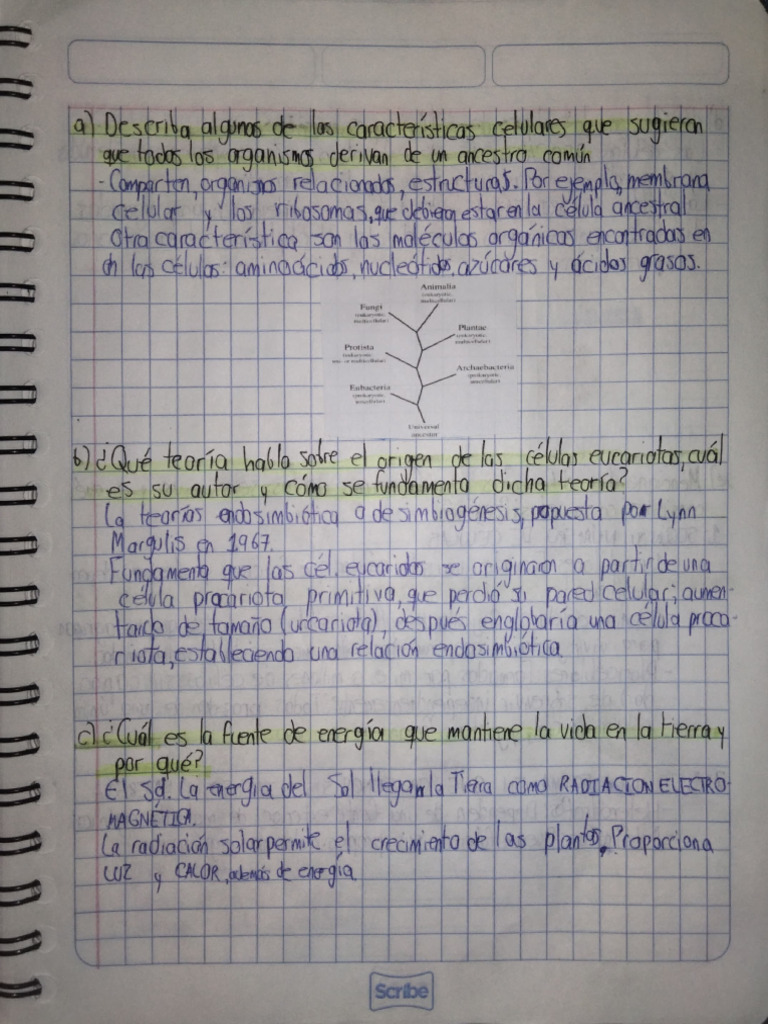 a) Describa algunas de las características celulares que sugieren
que todos los organismos derivan de un ancestro común
- Comparten, organismos relacionados, estructuras. Por ejemplo, membrana
celular y los ribosomas, que debieron estar en la célula ancestral
Otra característica son las moléculas orgánicas encontradas en
en las células: aminoácidos, nucleótidos, azúcares y ácidos grasos.
Animalia
(eukaryotic,
multicellular)
Fungi
(eukaryotic,
multicellular)
Plantae
(eukaryotic,
multicellular)
Protista
(eukaryotic,
uni- or multicellular)
Archaebacteria
(prokaryotic,
unicellular)
Eubacteria
(prokaryotic,
unicellular)
Universal
ancestor
b) ¿Qué teoría habla sobre el origen de las células eucariotas, cuál
es su autor y cómo se fundamenta dicha teoría?
La teorías endosimbiótica o de simbiogénesis, popuesta por Lynn
Margulis en 1967.
Fundamenta que las cél. eucaridas se originaron a partir de una
célula procariota primitiva, que perdió su pared celular; aumen-
tando de tamaño (urcariota), después englobaría una célula proca-
riota, estableciendo una relación endosimbiótica
c) ¿Cuál es la fuente de energía que mantiene la vida en la tierra y
por qué?
El Sol. La energía del Sol llega a la Tierra como RADIACION ELECTRO-
MAGNÉTICA.
La radiación solar permite el crecimiento de las plantas, Proporciona
LUZ y CALOR, además de energía
Scribe